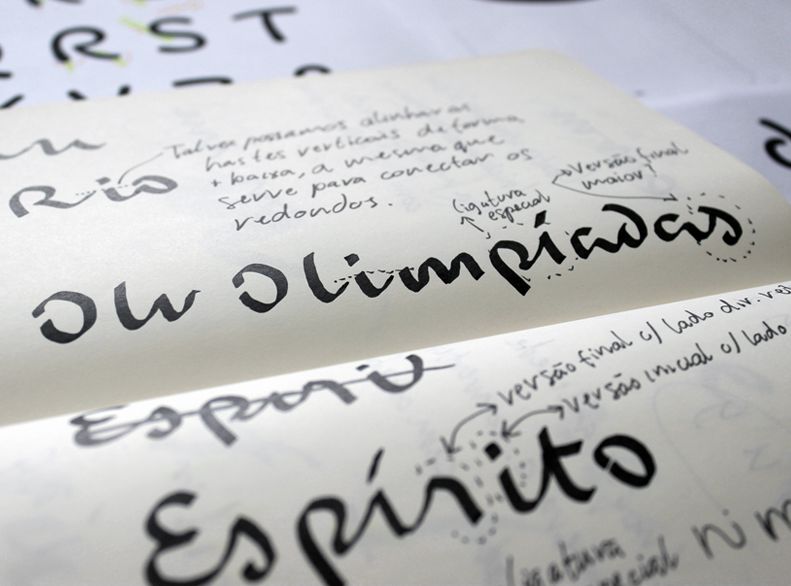 R R S T
Rio
Talvez possamos alinhar as
hastes verticais de forma
+ baixa, a mesma que
serve para conectar os
redondos.
ligatura
especial
versão final
maior?
Ol Olimpíadas
Espiri
versão final c/ lado dir. res
versão inicial c/ lado
Espírito
ligatura
especial